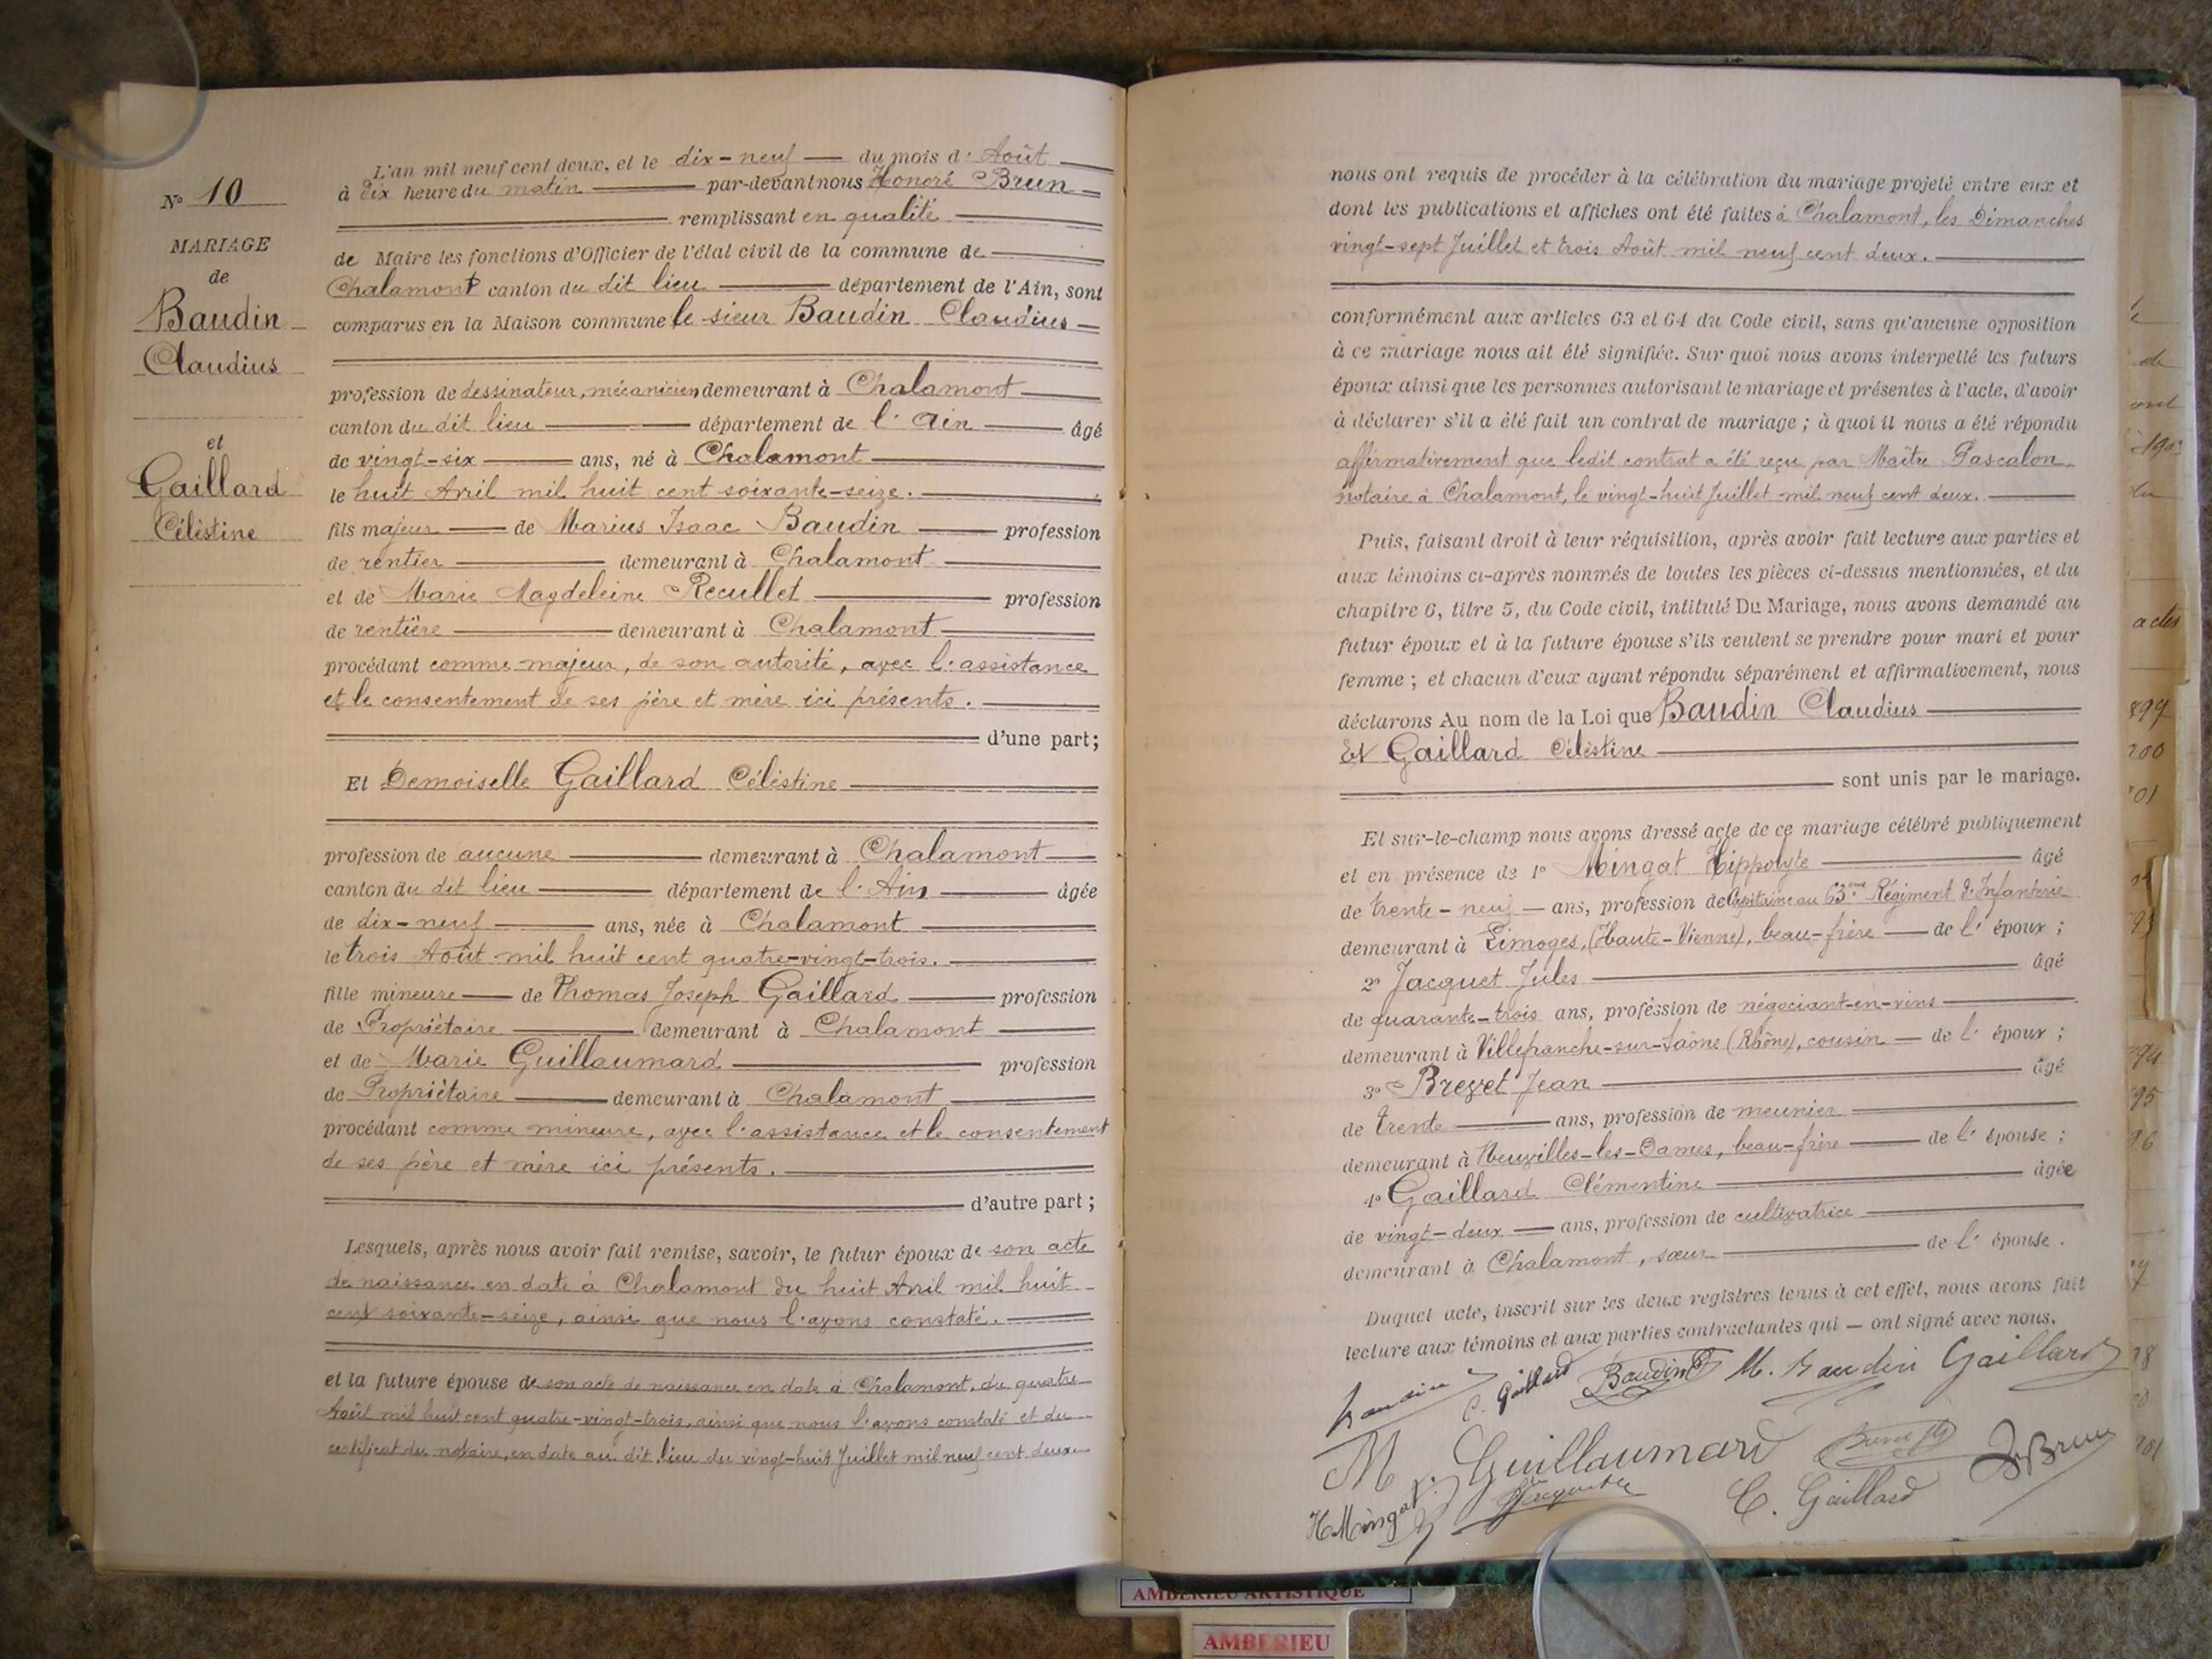 N° 10
MARIAGE
de
Baudin
Claudius
et
Gaillard
Célèstine
L'an mil neuf cent deux, et le dix-neuf du mois d'Août
à dix heure du matin par-devant nous Honoré Brun
remplissant en qualité
de Maire les fonctions d'Officier de l'état civil de la commune de
Chalamont canton du dit lieu département de l'Ain, sont
comparus en la Maison commune le sieur Baudin Claudius
profession de dessinateur, mécanicien demeurant à Chalamont
canton du dit lieu département de l'Ain âgé
de vingt-six ans, né à Chalamont
le huit Avril mil huit cent soixante-seize.
fils majeur de Marius Isaac Baudin profession
de rentier demeurant à Chalamont
et de Marie Magdeleine Recullet profession
de rentière demeurant à Chalamont
procédant comme majeur, de son autorité, avec l'assistance
et le consentement de ses père et mère ici présents.
d'une part;
Et Demoiselle Gaillard Célèstine
profession de aucune demeurant à Chalamont
canton du dit lieu département de l'Ain âgée
de dix-neuf ans, née à Chalamont
le trois Août mil huit cent quatre-vingt-trois.
fille mineure de Thomas Joseph Gaillard profession
de Propriètaire demeurant à Chalamont
et de Marie Guillaumard profession
de Propriètaire demeurant à Chalamont
procédant comme mineure, avec l'assistance et le consentement
de ses père et mère ici présents.
d'autre part;
Lesquels, après nous avoir fait remise, savoir, le futur époux de son acte
de naissance en date à Chalamont du huit Avril mil huit
cent soixante-seize, ainsi que nous l'avons constaté.
et la future épouse de son acte de naissance en date à Chalamont, du quatre
Août mil huit cent quatre-vingt-trois, ainsi que nous l'avons constaté et du
certificat du notaire, en date au dit lieu du vingt-huit Juillet mil neuf cent deux
nous ont requis de procéder à la célébration du mariage projeté entre eux et
dont les publications et affiches ont été faites à Chalamont, les Dimanches
vingt-sept Juillet et trois Août mil neuf cent deux.
conformément aux articles 63 et 64 du Code civil, sans qu'aucune opposition
à ce mariage nous ait été signifiée. Sur quoi nous avons interpellé les futurs
époux ainsi que les personnes autorisant le mariage et présentes à l'acte, d'avoir
à déclarer s'il a été fait un contrat de mariage; à quoi il nous a été répondu
affirmativement que ledit contrat a été reçu par Maître Pascalon,
notaire à Chalamont, le vingt-huit Juillet mil neuf cent deux.
Puis, faisant droit à leur réquisition, après avoir fait lecture aux parties et
aux témoins ci-après nommés de toutes les pièces ci-dessus mentionnées, et du
chapitre 6, titre 5, du Code civil, intitulé Du Mariage, nous avons demandé au
futur époux et à la future épouse s'ils veulent se prendre pour mari et pour
femme; et chacun d'eux ayant répondu séparément et affirmativement, nous
déclarons Au nom de la Loi que Baudin Claudius
Et Gaillard Célèstine
sont unis par le mariage.
Et sur-le-champ nous avons dressé acte de ce mariage célébré publiquement
et en présence de 1° Mingat Hippolyte âgé
de trente-neuf ans, profession de Capitaine au 63ème Régiment d'Infanterie
demeurant à Limoges, (Haute-Vienne), beau-frère de l'époux;
2° Jacquet Jules âgé
de quarante-trois ans, profession de négociant-en-vins
demeurant à Villefranche-sur-Saône (Rhône), cousin de l'époux;
3° Brevet Jean âgé
de trente ans, profession de meunier
demeurant à Neuvilles-les-Dames, beau-frère de l'épouse;
4° Gaillard Clémentine âgée
de vingt-deux ans, profession de cultivatrice
demeurant à Chalamont, sœur de l'épouse.
Duquel acte, inscrit sur les deux registres tenus à cet effet, nous avons fait
lecture aux témoins et aux parties contractantes qui ont signé avec nous.
C. Gaillard Baudin M. Baudin Gaillard
M Guillaumard Brevet HBrun
HMingat Jacquet C. Gaillard
de
actes
899
200
94
95
96
AMBERIEU ARTISTIQUE
AMBERIEU